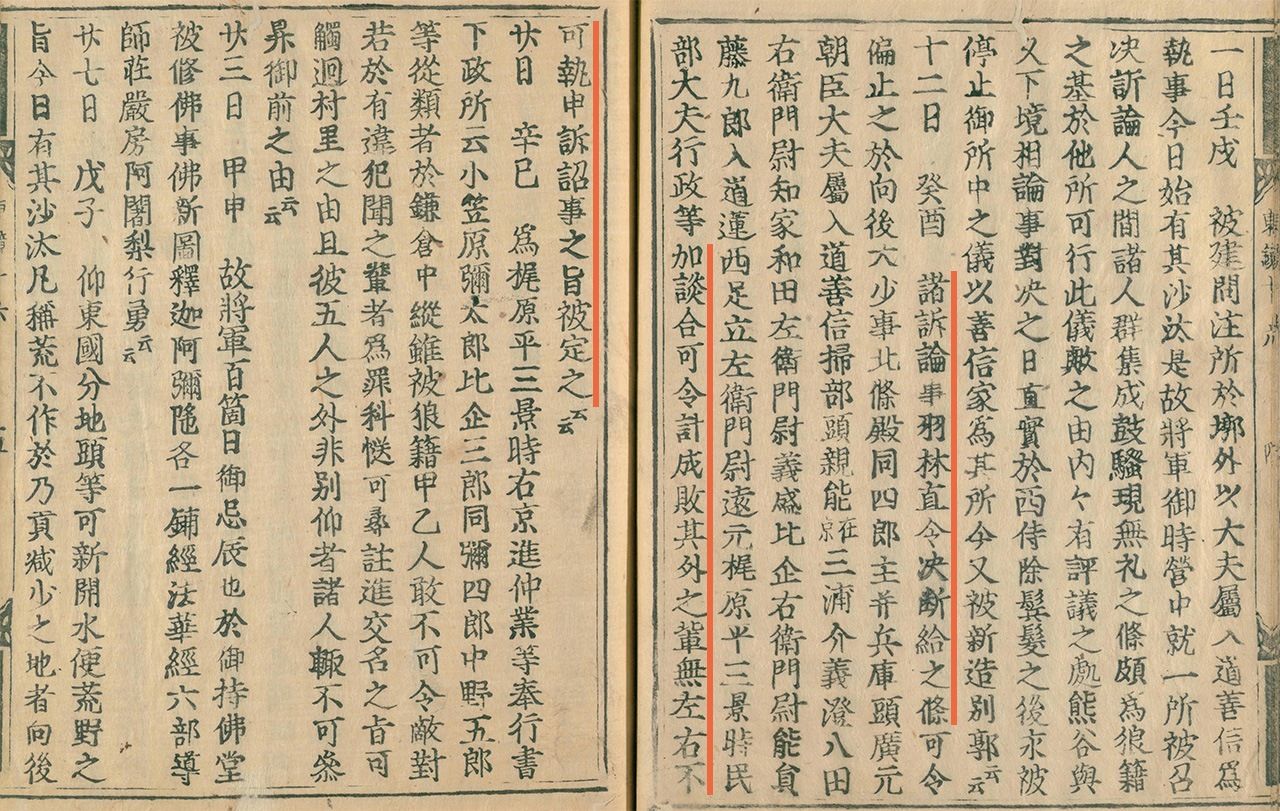 一日壬戌　被建問注所於墎外以大夫屬入道善信爲
執事今日始有其沙汰是故將軍御時營中就一所被召
决訴論人之間諸人群集成鼓騷現無礼之條頗爲狼籍
之基於他所可行此儀歟之由内々有評議之處熊谷與
久下境相論事對决之日直實於西侍除鬂髮之後永被
停止御所中之儀以善信家爲其所今又被新造別郭云云
十二日　癸酉　諸訴論事羽林直令决断給之條可令
偏止之於向後大少事北條殿同四郎主并兵庫頭廣元
朝臣大夫屬入道善信掃部頭親能在京三浦介義澄八田
右衛門尉知家和田左衛門尉義盛比企右衛門尉能員
藤九郎入道蓮西足立左衛門尉遠元梶原平三景時民
部大夫行政等加談合可令計成敗其外之輩無左右不
可執申訴詔事之旨被定之云云
廿日　辛巳　爲梶原平三景時右京進仲業等奉行書
下政所云小笠原彌太郎比企三郎同彌四郎中野五郎
等從類者於鎌倉中縱雖被狼籍甲乙人敢不可令敵對
若於有違犯聞之輩者爲罪科慥可尋註進交名之旨可
觸廻村里之由且彼五人之外非别仰者諸人輙不可叅
昇御前之由云云
廿三日　甲申　故將軍百箇日御忌辰也於御持佛堂
被修佛事佛新圖釋迦阿彌陁各一鋪經法華經六部導
師莊嚴房阿闍梨行勇云云
廿七日　戊子　仰東國分地頭等可新開水便荒野之
旨今日有其沙汰凡稱荒不作於乃貢減少之地者向後